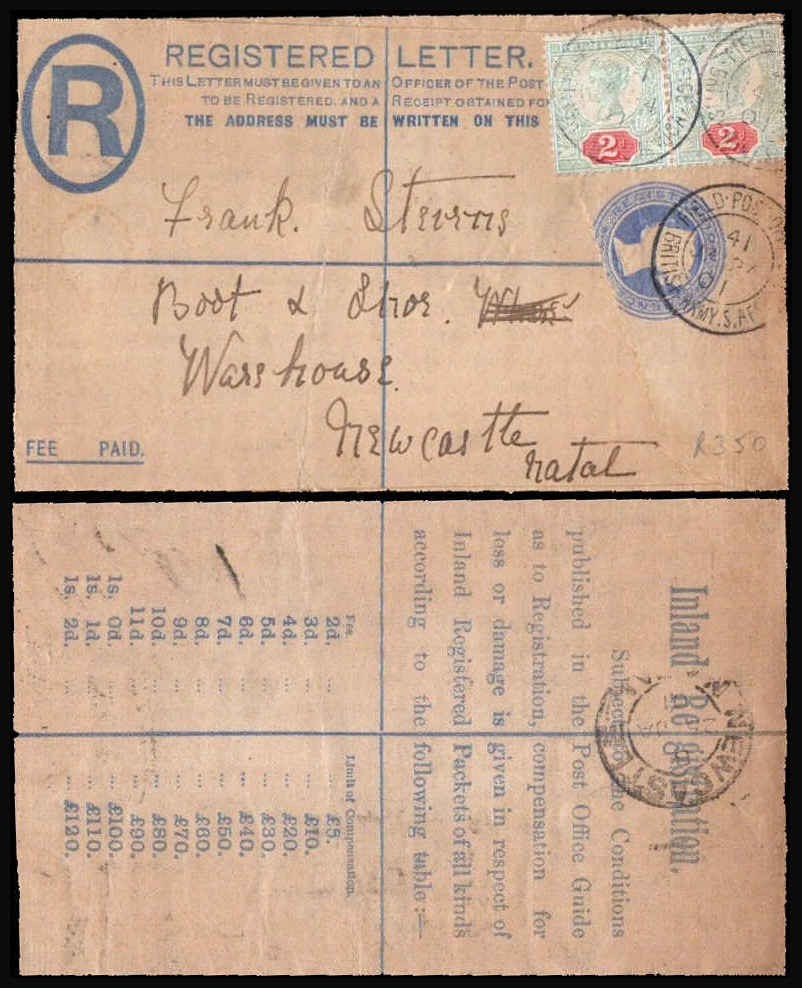 R
REGISTERED LETTER.
THIS LETTER MUST BE GIVEN TO AN OFFICER OF THE POST
TO BE REGISTERED, AND A RECEIPT OBTAINED FOR
THE ADDRESS MUST BE WRITTEN ON THIS
2D
2D
FIELD·POST
41
01
BRITISH ARMY.S.AF
Frank. Stevens
Boot & Shoe.
Warehouse.
Newcastle
Natal
R350
FEE PAID.
Inland Registration.
Subject to the Conditions
published in the Post Office Guide
as to Registration, compensation for
loss or damage is given in respect of
Inland Registered Packets of all kinds
according to the following table:—
Fee. Limit of Compensation.
2d. ... ... £5.
3d. ... ... £10.
4d. ... ... £20.
5d. ... ... £30.
6d. ... ... £40.
7d. ... ... £50.
8d. ... ... £60.
9d. ... ... £70.
10d. ... ... £80.
11d. ... ... £90.
1s. 0d. ... ... £100.
1s. 1d. ... ... £110.
1s. 2d. ... ... £120.
NEWCASTLE